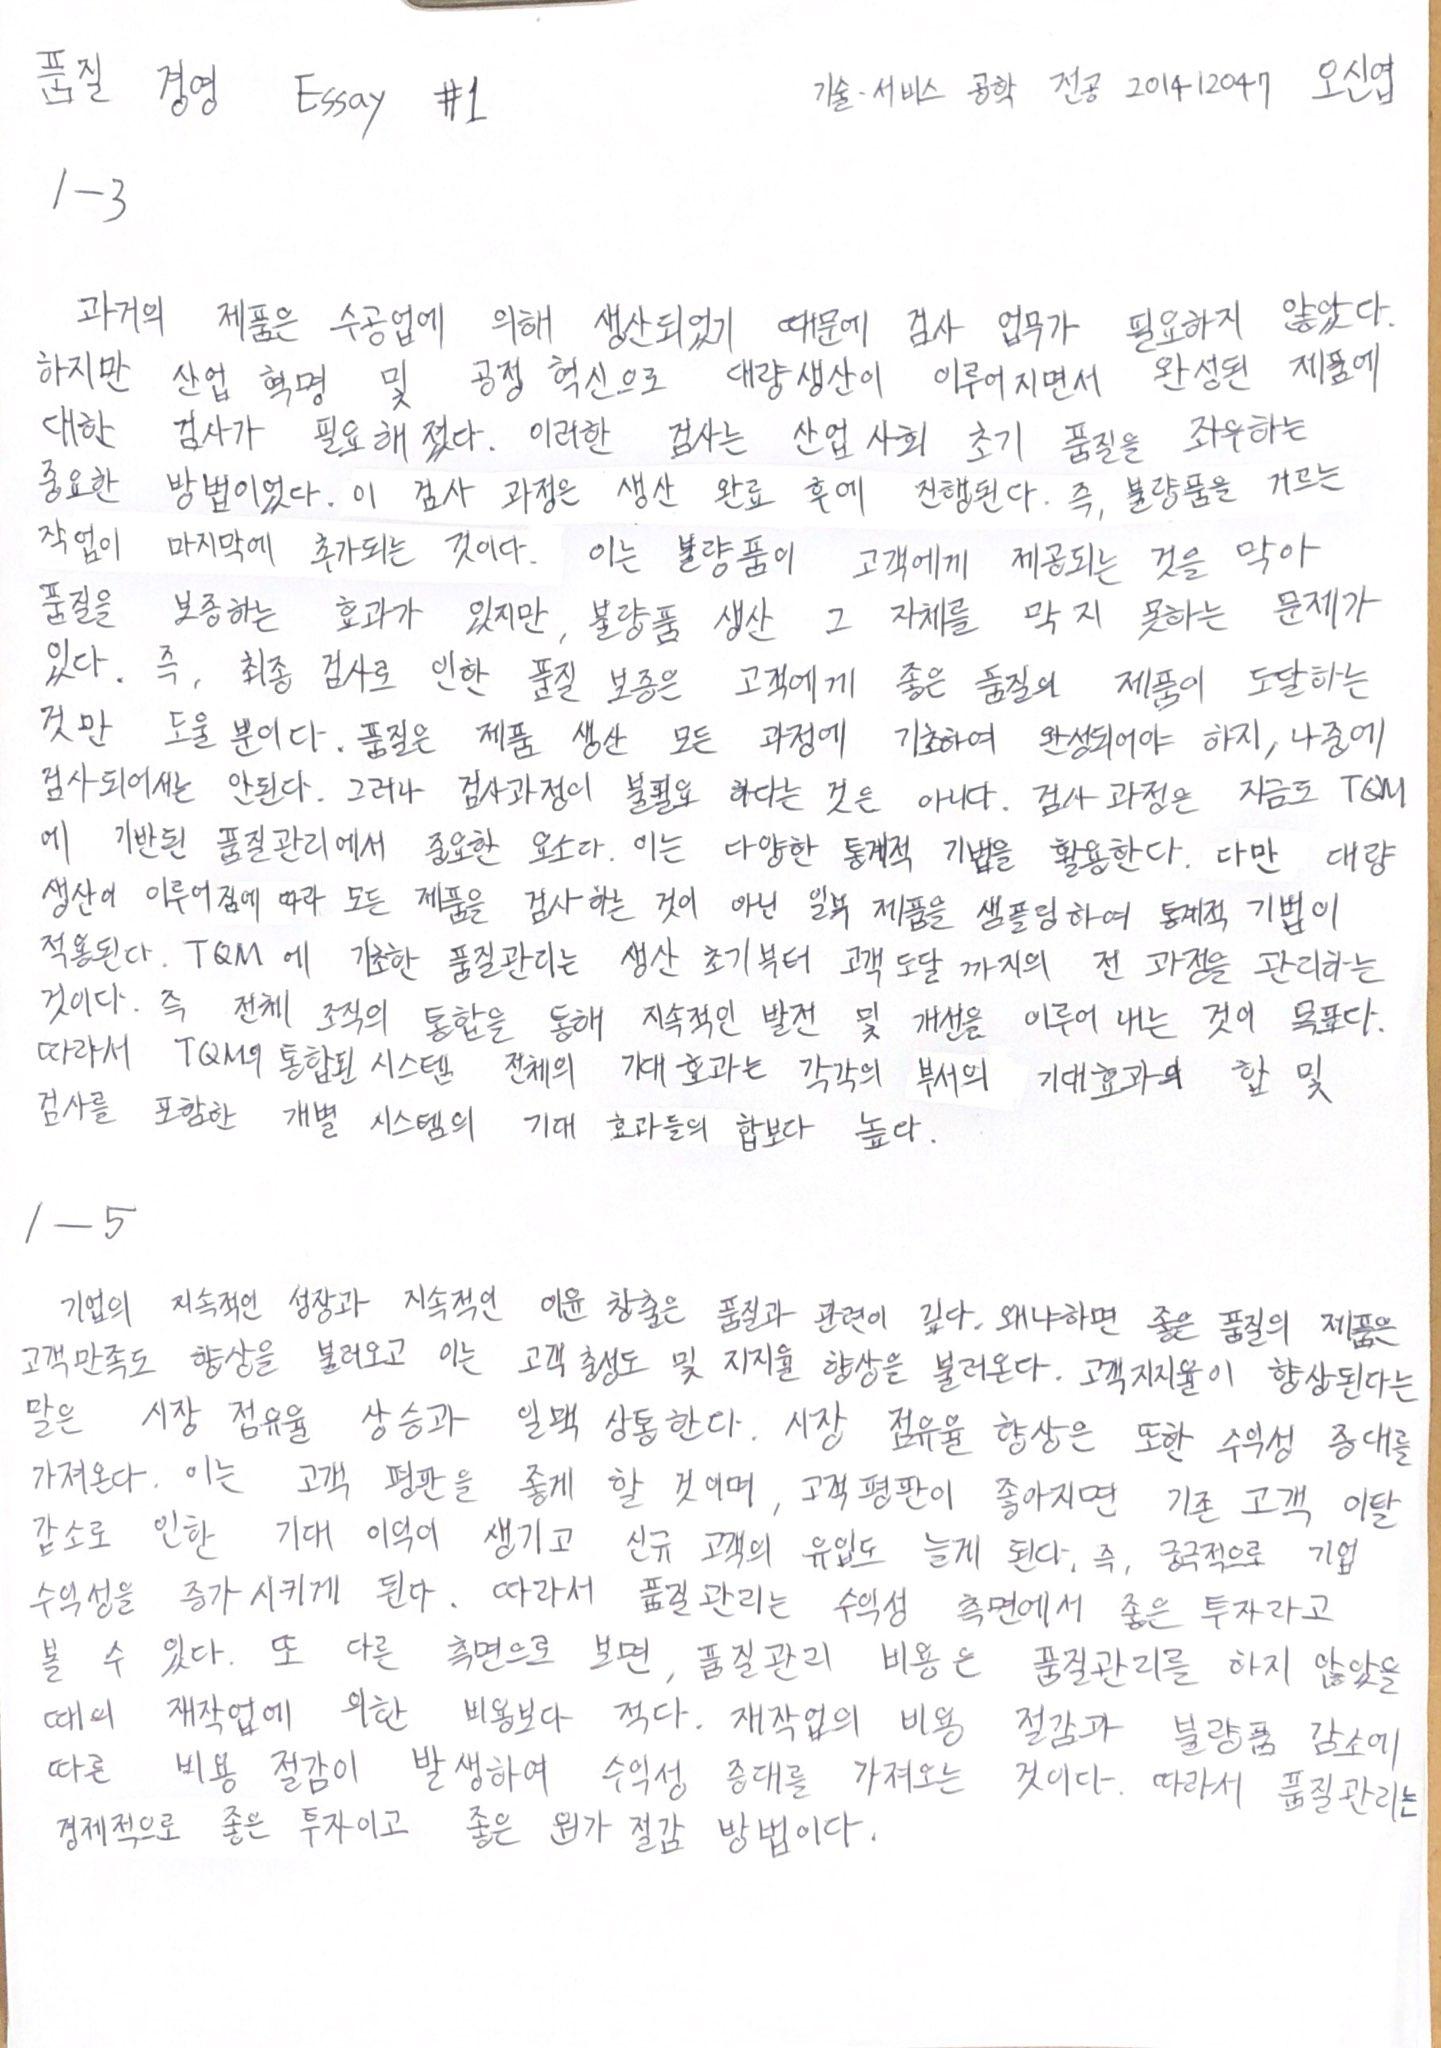 품질 경영 Essay #1
기술·서비스 공학 전공 201412047 오신엽
1-3
과거의 제품은 수공업에 의해 생산되었기 때문에 검사 업무가 필요하지 않았다.
하지만 산업 혁명 및 공정 혁신으로 대량생산이 이루어지면서 완성된 제품에
대한 검사가 필요해졌다. 이러한 검사는 산업사회 초기 품질을 좌우하는
중요한 방법이었다. 이 검사 과정은 생산 완료 후에 진행된다. 즉, 불량품을 거르는
작업이 마지막에 추가되는 것이다. 이는 불량품이 고객에게 제공되는 것을 막아
품질을 보증하는 효과가 있지만, 불량품 생산 그 자체를 막지 못하는 문제가
있다. 즉, 최종 검사로 인한 품질 보증은 고객에게 좋은 품질의 제품이 도달하는
것만 도울 뿐이다. 품질은 제품 생산 모든 과정에 기초하여 완성되어야 하지, 나중에
검사되어서는 안된다. 그러나 검사과정이 불필요 하다는 것은 아니다. 검사 과정은 지금도 TQM
에 기반된 품질관리에서 중요한 요소다. 이는 다양한 통계적 기법을 활용한다. 다만 대량
생산이 이루어짐에 따라 모든 제품을 검사하는 것이 아닌 일부 제품을 샘플링하여 통계적 기법이
적용된다. TQM에 기초한 품질관리는 생산 초기부터 고객 도달 까지의 전 과정을 관리하는
것이다. 즉 전체 조직의 통합을 통해 지속적인 발전 및 개선을 이루어 내는 것이 목표다.
따라서 TQM의 통합된 시스템 전체의 기대 효과는 각각의 부서의 기대효과의 합 및
검사를 포함한 개별 시스템의 기대 효과들의 합보다 높다.
1-5
기업의 지속적인 성장과 지속적인 이윤 창출은 품질과 관련이 깊다. 왜냐하면 좋은 품질의 제품은
고객만족도 향상을 불러오고 이는 고객 충성도 및 지지율 향상을 불러온다. 고객지지율이 향상된다는
말은 시장 점유율 상승과 일맥 상통한다. 시장 점유율 향상은 또한 수익성 증대를
가져온다. 이는 고객 평판을 좋게 할 것이며, 고객평판이 좋아지면 기존 고객 이탈
감소로 인한 기대 이익이 생기고 신규 고객의 유입도 늘게 된다. 즉, 궁극적으로 기업
수익성을 증가시키게 된다. 따라서 품질관리는 수익성 측면에서 좋은 투자라고
볼 수 있다. 또 다른 측면으로 보면, 품질관리 비용은 품질관리를 하지 않았을
때의 재작업에 의한 비용보다 적다. 재작업의 비용 절감과 불량품 감소에
따른 비용 절감이 발생하여 수익성 증대를 가져오는 것이다. 따라서 품질관리는
경제적으로 좋은 투자이고 좋은 원가 절감 방법이다.